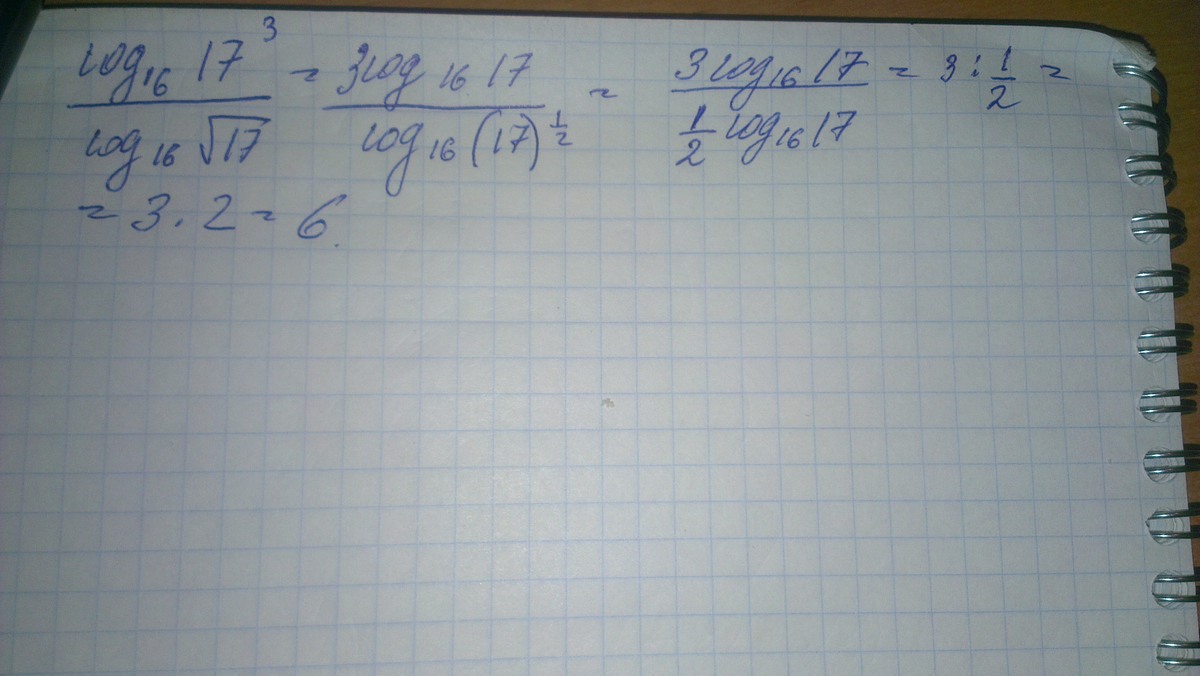 log₁₆ 17³ / log₁₆ √17 = 3log₁₆ 17 / log₁₆ (17)^(1/2) = 3log₁₆17 / (1/2 log₁₆17) = 3 : 1/2 =
= 3 · 2 = 6.